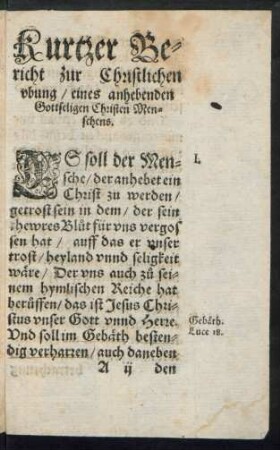 Kurtzer Be-
richt zur Christlichen
vbung / eines anhebenden
Gottseligen Christen Men-
schens.
ES soll der Men-
sche / der anhebet ein
Christ zu werden /
getrost sein in dem / der sein
thewres Blůt für vns vergos
sen hat / auff das er vnser
trost / heyland vnnd seligkeit
wäre / Der vns auch zů sei-
nem hymlischen Reiche hat
berůffen / das ist Jesus Chri-
stus vnser Gott vnnd Herre
Vnd soll im Gebäth besten-
dig verharren / auch daneben
A ij den
I.
Gebäth.
Luce 18.